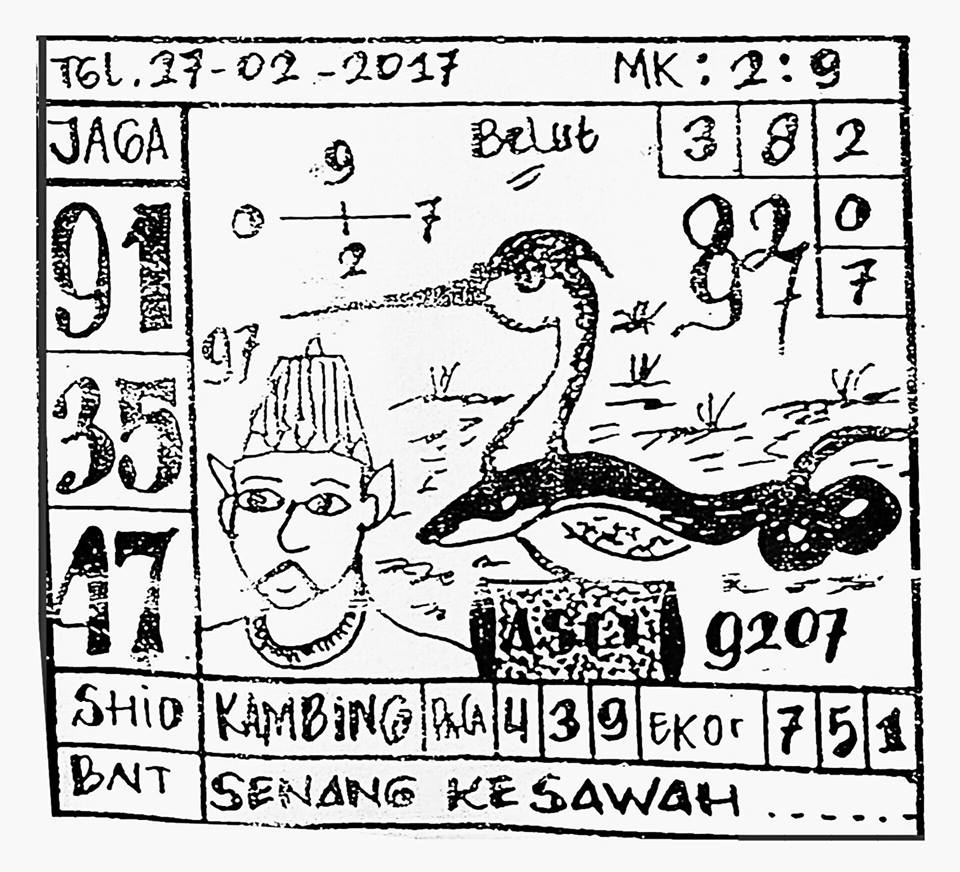 TGL. 27-02-2017 MK: 2:9
JAGA
9
Belut
3 8 2
0 7
2
0
7
92
87
97
91
35
47
ASLI
9207
SHIO KAMBING PALA 4 3 9 EKOr 7 5 1
BNT SENANG KE SAWAH ......